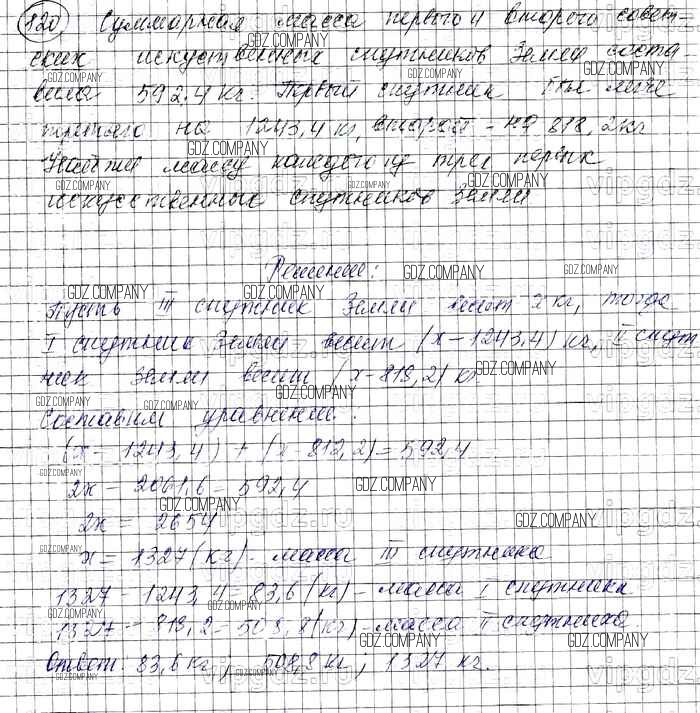 120 Суммарная масса первого и второго совет-
ских искусственных спутников Земли соста
вила 592.4 кг. Первый спутник был легче
третьего на 1243,4 кг, второй - на 818,2 кг
Найдите массу каждого из трех первых
искусственных спутников Земли
Решение:
Пусть III спутник Земли весит x кг, тогда
I спутник Земли весит (x - 1243,4) кг, II спут
ник Земли весит (x - 818,2) кг
Составим уравнение:
(x - 1243,4) + (x - 818,2) = 592,4
2x - 2061,6 = 592,4
2x = 2654
x = 1327 (кг) - масса III спутника
1327 - 1243,4 = 83,6 (кг) - масса I спутника
1327 - 818,2 = 508,8 (кг) - масса II спутника
Ответ 83,6 кг, 508,8 кг, 1327 кг.
GDZ.COMPANY
vipgdz.ru